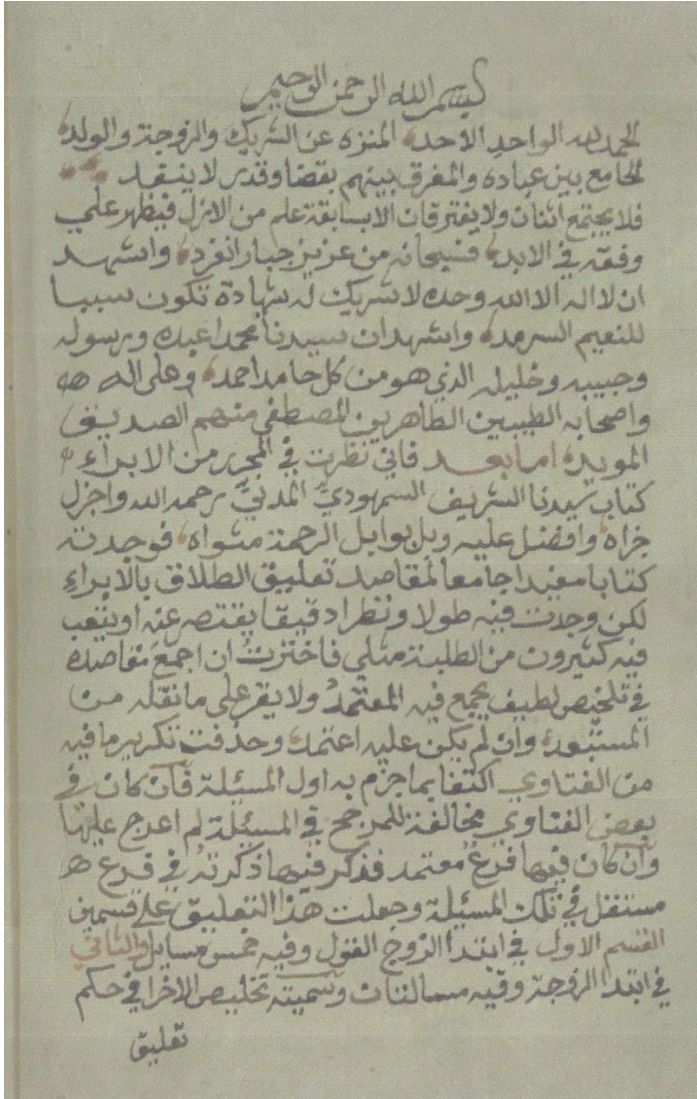 بسم الله الرحمن الرحيم
الحمد لله الواحد الاحد المنزه عن الشريك والزوجة والولد
الجامع بين عباده والمفرق بينهم بقضا وقدر لا ينفد
فلا يجتمع اثنان ولا يفترقان الا بسابقة علم من الازل فيظهر علي
وفقه في الابد فسبحانه من عزيز جبار انفرد واشهد
ان لا اله الا الله وحده لا شريك له شهادة تكون سببا
للنعيم السرمد واشهد ان سيدنا محمدا عبده ورسوله
وحبيبه وخليله الذي هو من كل حامد احمد وعلى اله
واصحابه الطيبين الطاهرين المصطفي منهم الصديق
المويد اما بعد فاني نظرت في المحرر من الابراء
كتاب سيدنا الشريف السمهودي المدني رحمه الله واجزل
جزاه وافضل عليه وبل بوابل الرحمة مثواه فوجدته
كتابا مفيدا جامعا لمقاصد تعليق الطلاق بالابراء
لكن وجدت فيه طولا ونظرا دقيقا يقتصر عنه او يتعب
فيه كثيرون من الطلبة مثلي فاخترت ان اجمع مقاصده
في تلخيص لطيف يجمع فيه المعتمد ولا يقر على ما نقله من
المستبعد وان لم يكن عليه اعتمد وحذفت تكرير ما فيه
من الفتاوي اكتفا بما اجزم به اول المسئلة فان كان في
بعض الفتاوي مخالفة للمرجح في المسئلة لم اعرج عليها
وان كان فيها فرع معتمد فذكر فيها ذكرته في فرع
مستقل في تلك المسئلة وجعلت هذا التعليق على قسمين
القسم الاول في ابتدا الزوج القول وفيه خمس مسايل والثاني
في ابتدا الزوجة وفيه مسالتان وسميته تخليص الاخرا في حكم
تعليق